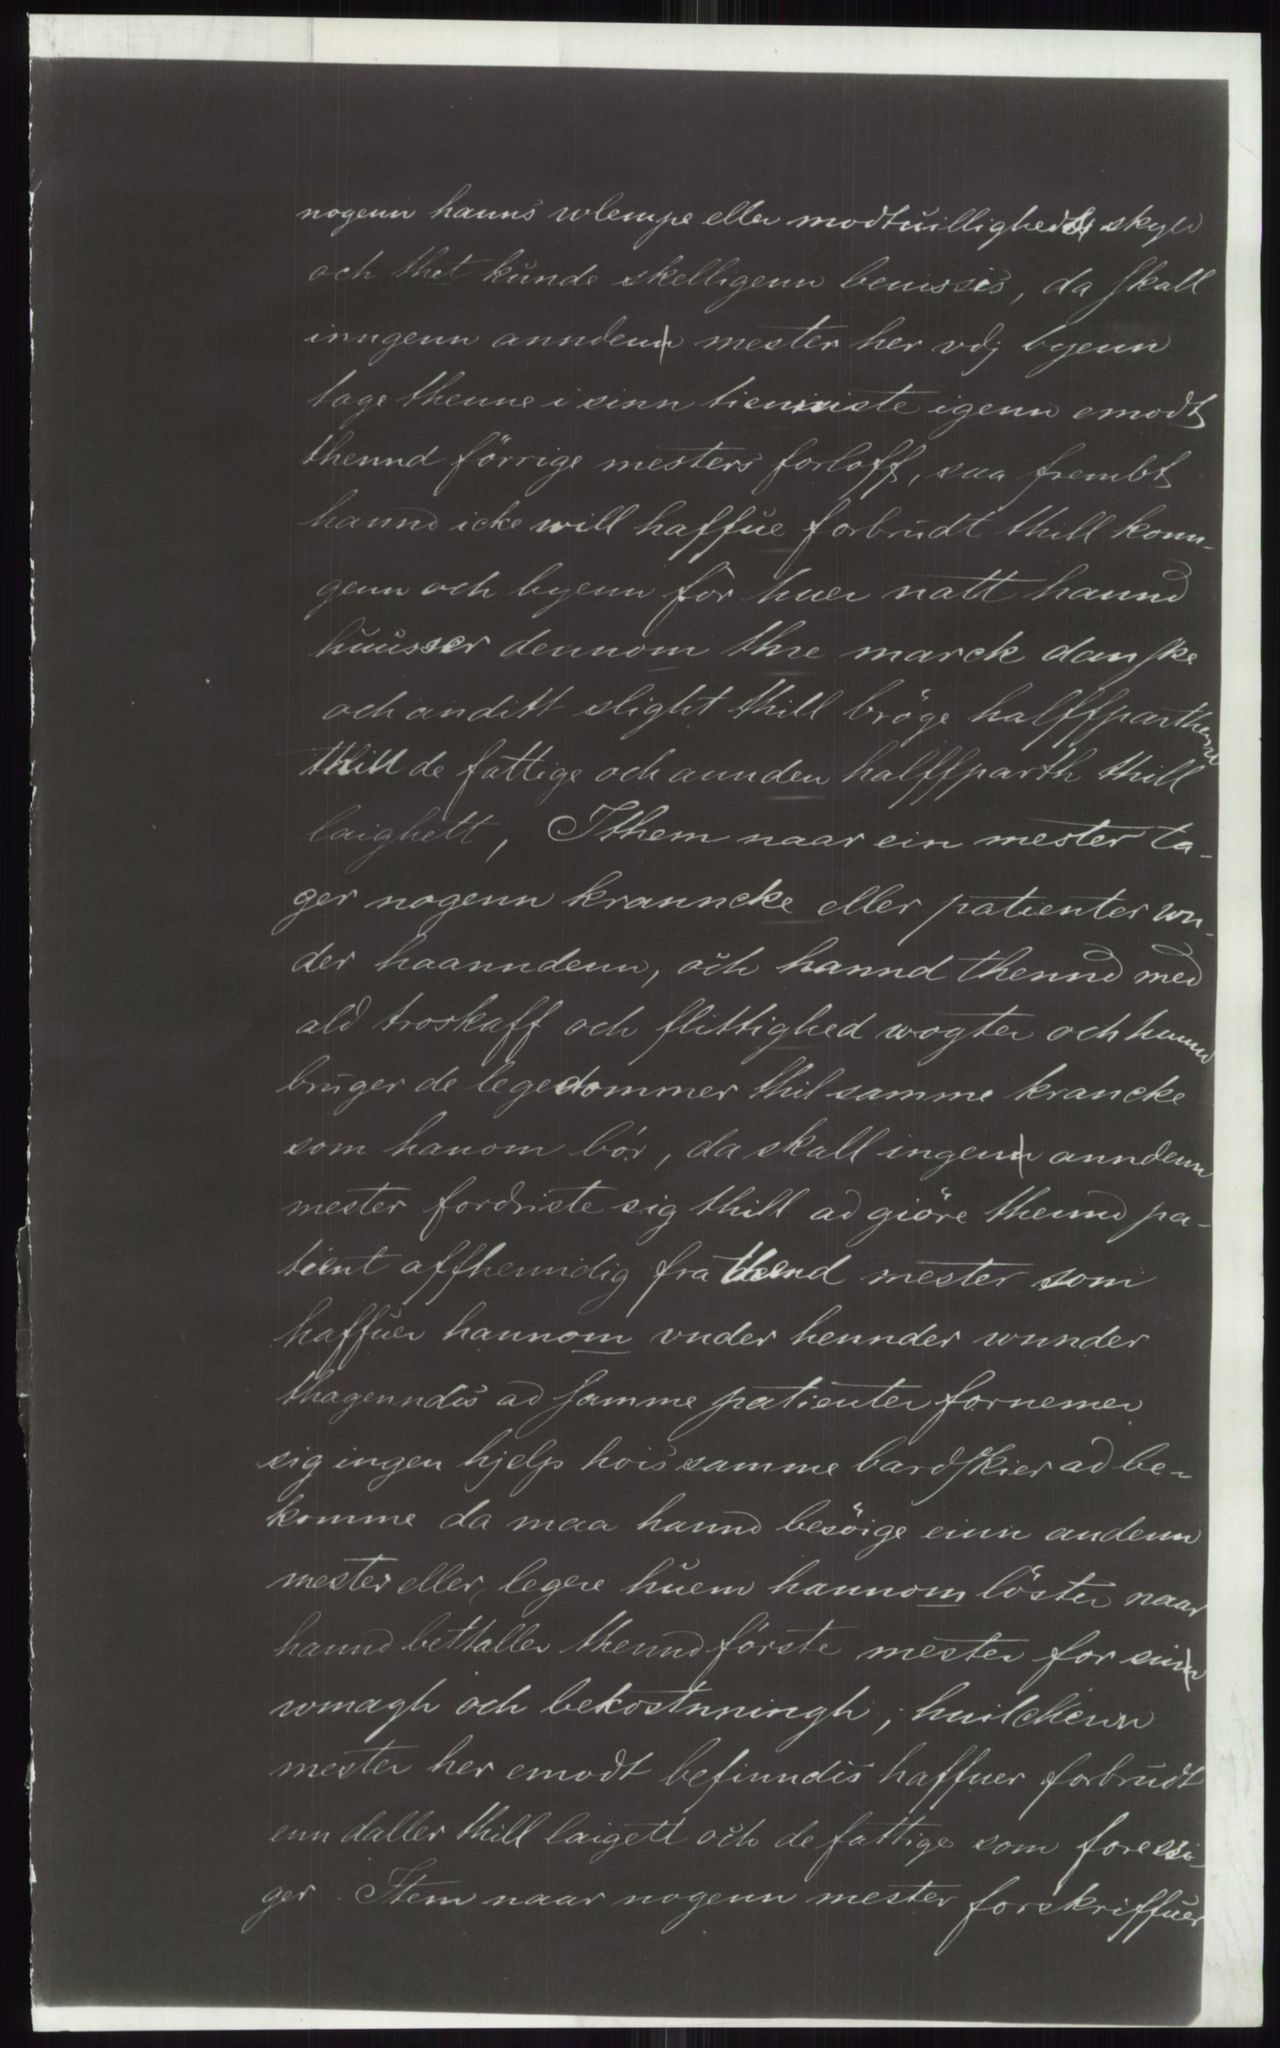 nogenn hanns wlempe eller modtuillighedts skyld
och thet kunde skelligenn beuissis, da skall
inngenn anndenn mester her vdj byenn
tage thenne i sinn tienniste igenn emodt
thennd förrige mesters forloff, saa frembt
hannd icke will haffue forbrudt thill konn-
genn och byenn for huer natt hannd
huusser dennom thre marck danske
och anditt slight thill bröge halffparthenn
thill de fattige och annden halffparth thill
laighett, Ithem naar ein mester ta-
ger nogenn kranncke eller patienter wn-
der haanndenn, och hannd thennd med
ald troskaff och flittighed wogter och hannd
bruger de legedommer thil samme krancke
som hanom bör, da skall ingenn anndenn
mester fordriste sig thill ad giöre thennd pa-
tient affhenndig fra thend mester som
haffuer hannom vnder hennder wnnder
thagenndis ad samme patienter fornemer
sig ingen hjelp hois samme bardskier ad be-
komme da maa hannd besöige einn andenn
mester eller legere huem hannom löster naar
hannd bettaller thennd förste mester for sinn
wmagh och bekostnningh, huilchenn
mester her emodt befinndis haffuer forbrudt
enn daller thill laigett och de fattige som foressi-
ger. Item naar nogenn mester forskriffuer